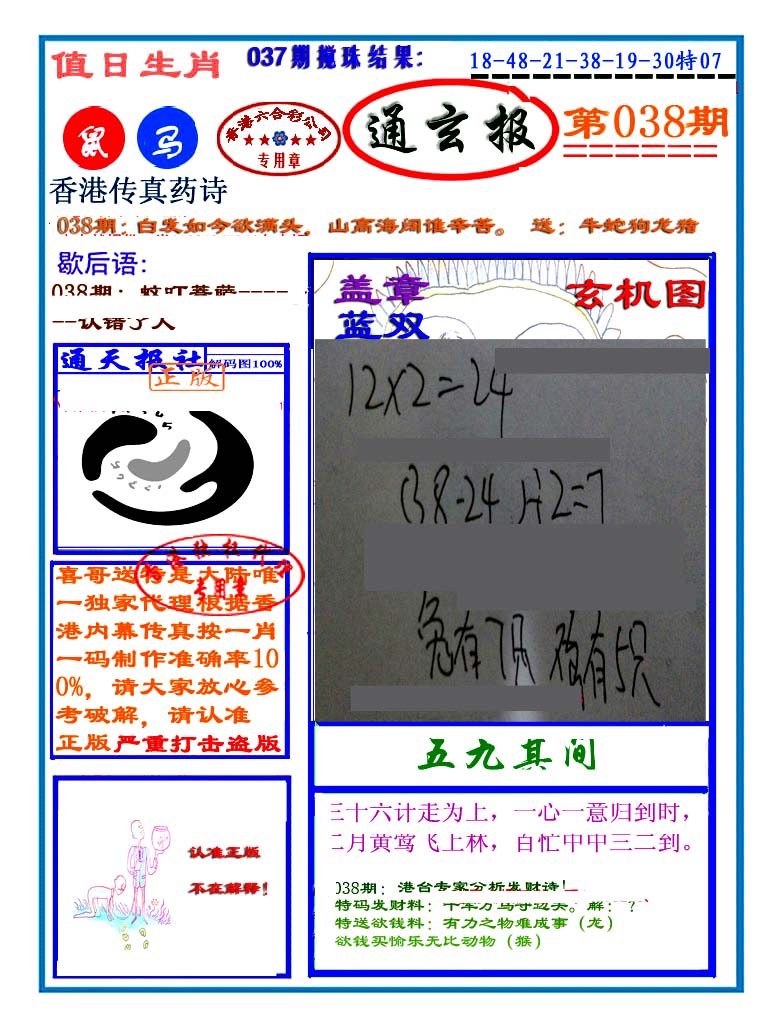 值日生肖
037期搅珠结果:
18-48-21-38-19-30特07
鼠
马
香港六合彩公司
专用章
通玄报
第038期
香港传真药诗
038期:白发如今欲满头,山高海阔谁辛苦。 送:牛蛇狗龙猪
歇后语:
038期:蚊叮菩萨----
--认错了人
盖章
蓝双
玄机图
通天报社
解码图100%
正版
12×2=24
(38-24)÷2=7
兔有7只
有5只
喜哥送传是大陆唯
一独家代理根据香
港内幕传真按一肖
一码制作准确率10
0%,请大家放心参
考破解,请认准
正版严重打击盗版
专用章
五九其间
三十六计走为上,一心一意归到时,
二月黄莺飞上林,百忙中中三二到。
认准正版
不在解释!
038期:港台专家分析发财诗!
特码发财料:
解:?
特送欲钱料:有力之物难成事(龙)
欲钱买愉乐无比动物(猴)